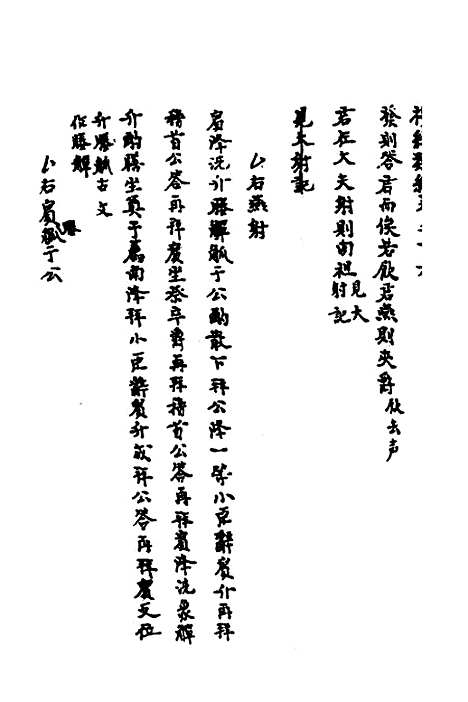 發則答君而俟若飲君燕則夾爵 飲去声
君在大夫射則肉袒 見大射記
厶右燕射
賓降洗升媵觶觚于公酌散下拜公降一等小臣辭賓升再拜
稽首公答再拜賓坐祭卒爵再拜稽首公答再拜賓降洗象觶
升酌膳坐奠于薦南降拜小臣辭賓升成拜公答再拜賓反位
升媵觚古文
作媵觶
厶右賓媵觚于公